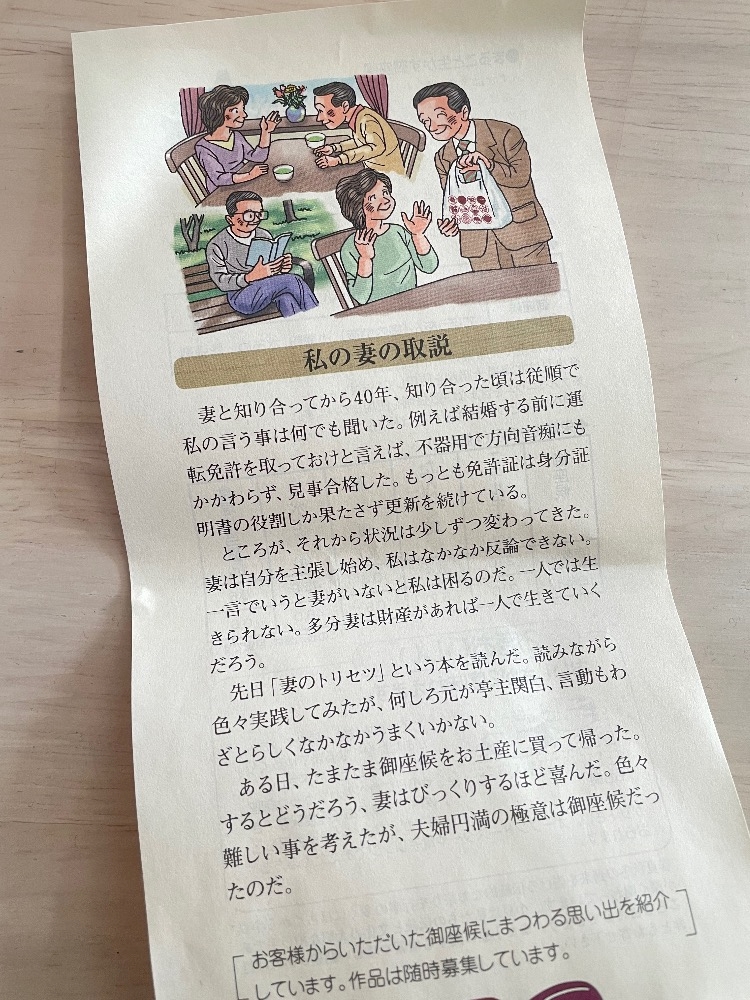 私の妻の取説
妻と知り合ってから40年、知り合った頃は従順で
私の言う事は何でも聞いた。例えば結婚する前に運
転免許を取っておけと言えば、不器用で方向音痴にも
かかわらず、見事合格した。もっとも免許証は身分証
明書の役割しか果たさず更新を続けている。
ところが、それから状況は少しずつ変わってきた。
妻は自分を主張し始め、私はなかなか反論できない。
一言でいうと妻がいないと私は困るのだ。一人では生
きられない。多分妻は財産があれば一人で生きていく
だろう。
先日「妻のトリセツ」という本を読んだ。読みながら
色々実践してみたが、何しろ元が亭主関白、言動もわ
ざとらしくなかなかうまくいかない。
ある日、たまたま御座候をお土産に買って帰った。
するとどうだろう、妻はびっくりするほど喜んだ。色々
難しい事を考えたが、夫婦円満の極意は御座候だっ
たのだ。
お客様からいただいた御座候にまつわる思い出を紹介
しています。作品は随時募集しています。